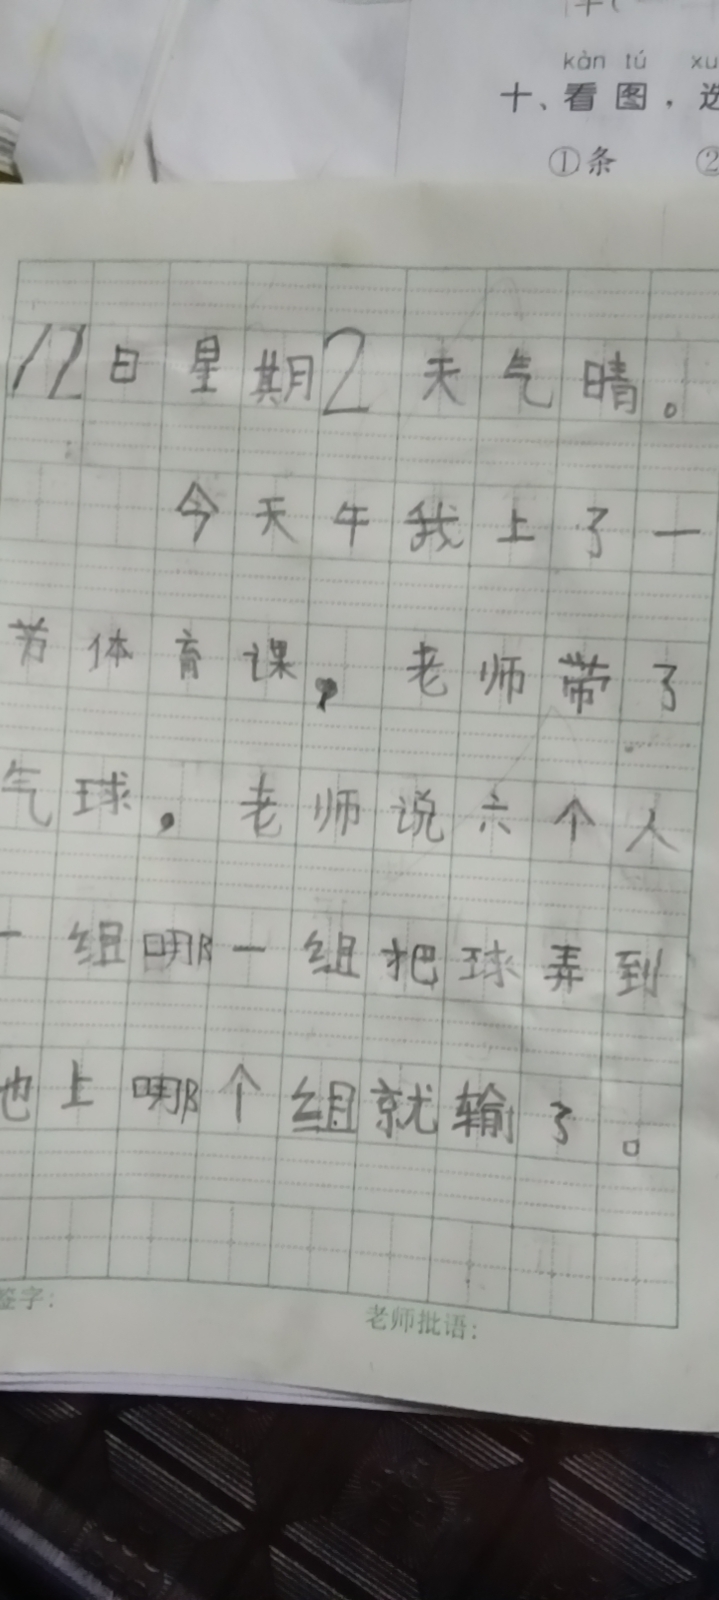 kàn tú xu
十、看图，选
①条 ②
12日星期2天气晴。
今天午我上了一
节体育课，老师带了
气球，老师说六个人
一组哪一组把球弄到
地上哪个组就输了。
签字：
老师批语：